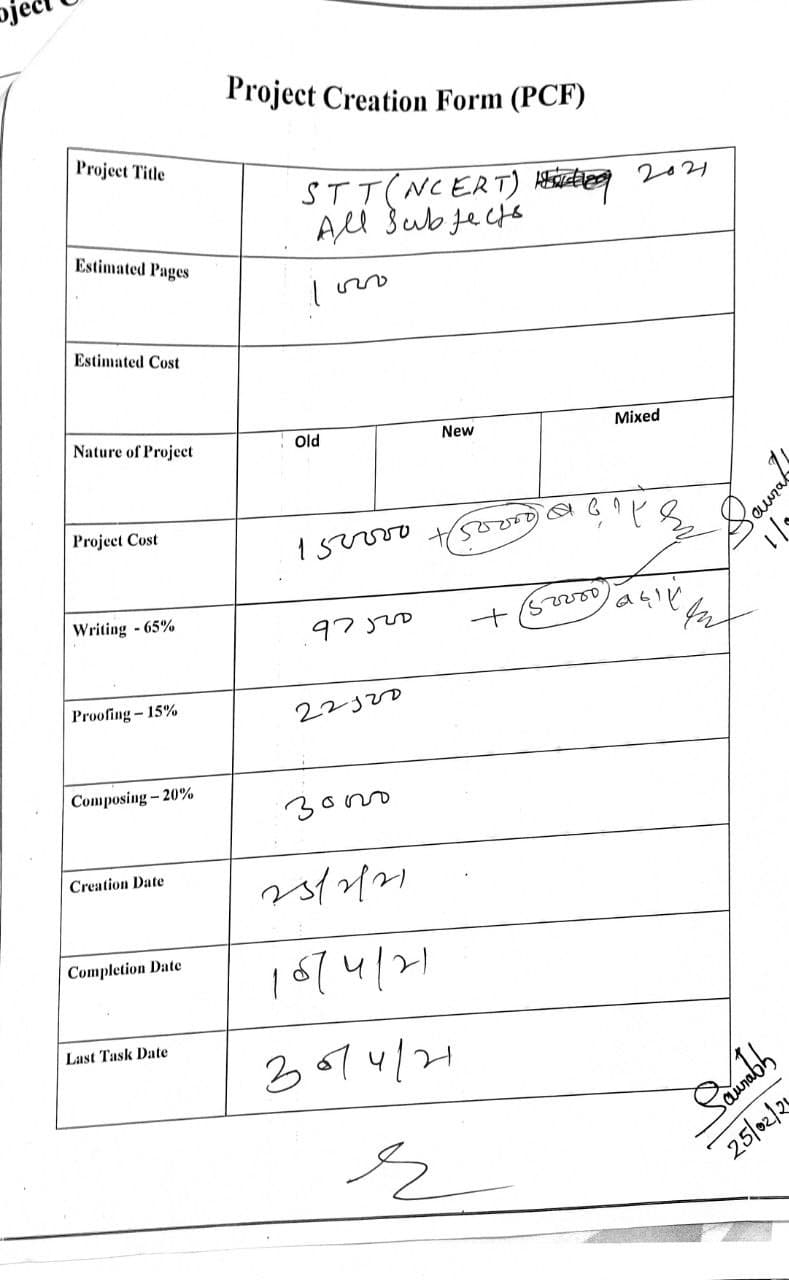 oject
Project Creation Form (PCF)
Project Title
STT (NCERT) 2021
All Subjects
Estimated Pages
1000
Estimated Cost
Nature of Project
Old
New
Mixed
Project Cost
150000 + 50000
Saurabh
Writing - 65%
97500 + 50000
Proofing – 15%
22500
Composing – 20%
30000
Creation Date
25/2/21
Completion Date
10/4/21
Last Task Date
30/4/21
Saurabh
25/02/21